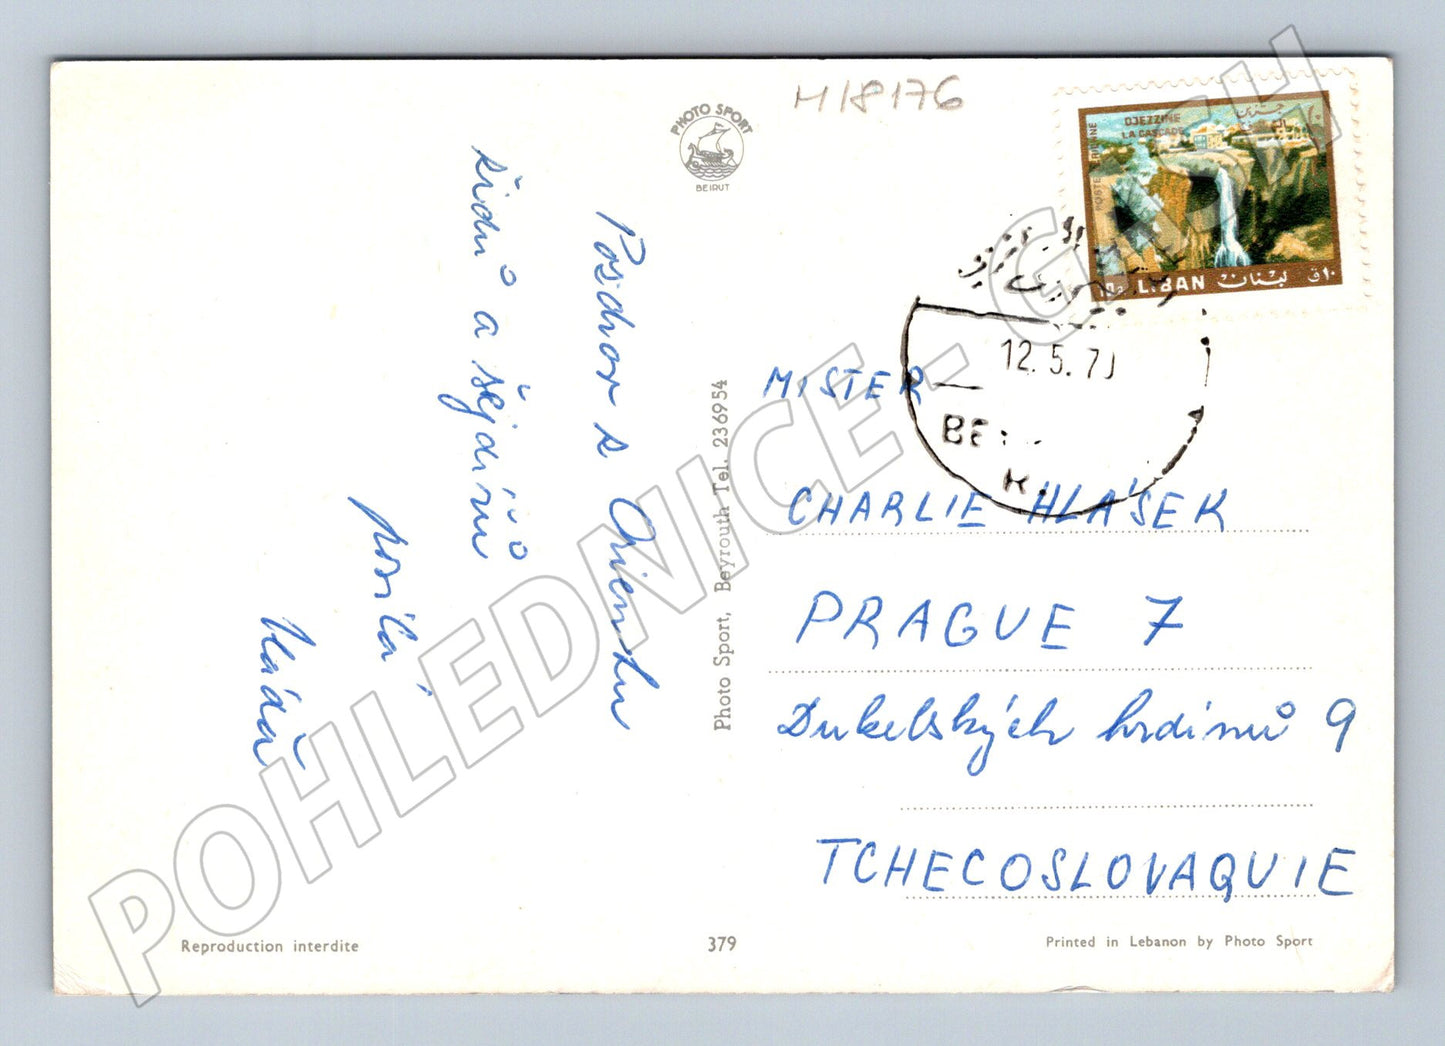 H18176
PHOTO SPORT
BEIRUT
DJEZZINE
LA CASCADE
جزين
POSTE AERIENNE
10p LIBAN لبنان ق١٠
12.5.7
BE
MISTER
CHARLIE HLÁSEK
PRAGUE 7
Dukelských hrdinů 9
TCHECOSLOVAQUIE
Pozdrav s Orientu
židů a šejdířů
posílá
Vladař
Photo Sport, Beyrouth Tel. 236954
Reproduction interdite
379
Printed in Lebanon by Photo Sport
POHLEDNICE-G